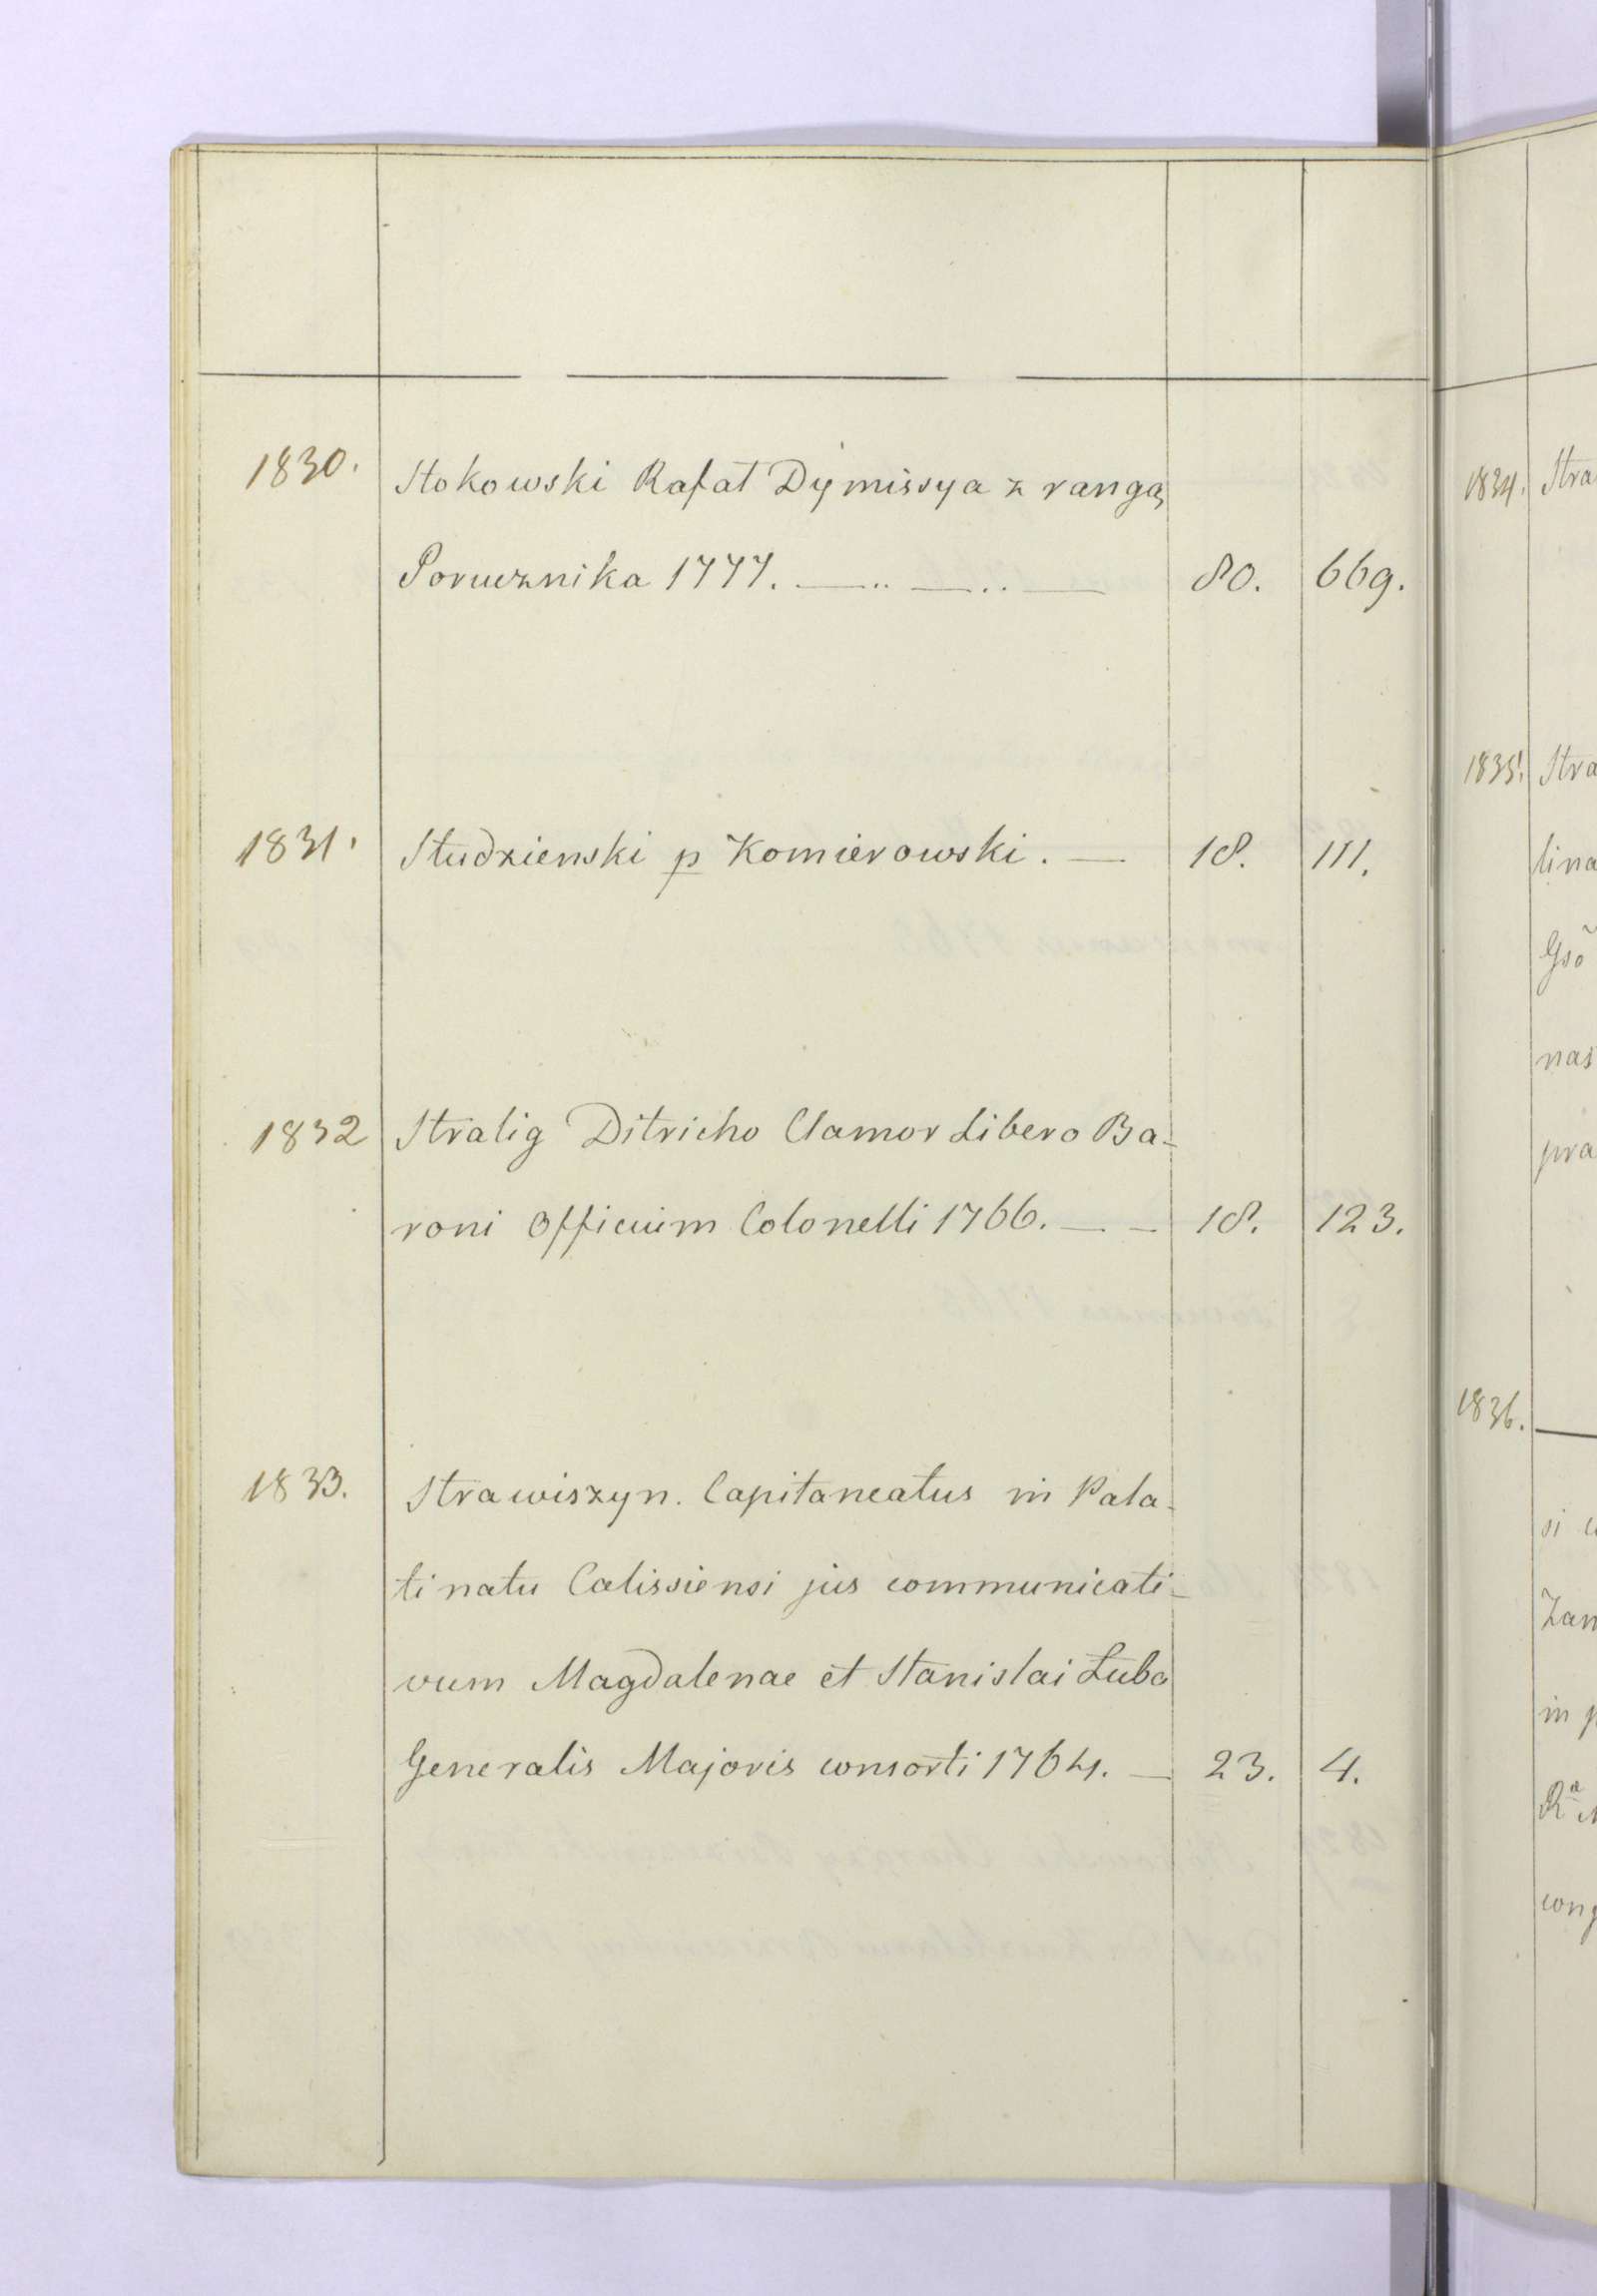 1830. Stokowski Rafał Dymissya z rangą
Porucznika 1777. —..—..— 80. 669.
1831. Studzienski p Komierowski. — 18. 111.
1832 Stralig Ditricho Clamor Libero Ba-
roni Officium Colonelli 1766. — — 18. 123.
1833. Strawiszyn. Capitaneatus in Pala-
tinatu Calissiensi jus communicati-
vum Magdalenae et Stanislai Łuba
Generalis Majoris consorti 1764. — 23. 4.
1834. Stra
1835. Stra
lina
Gsõ
nas
pra
1836. —
si
Zam
in p
cong